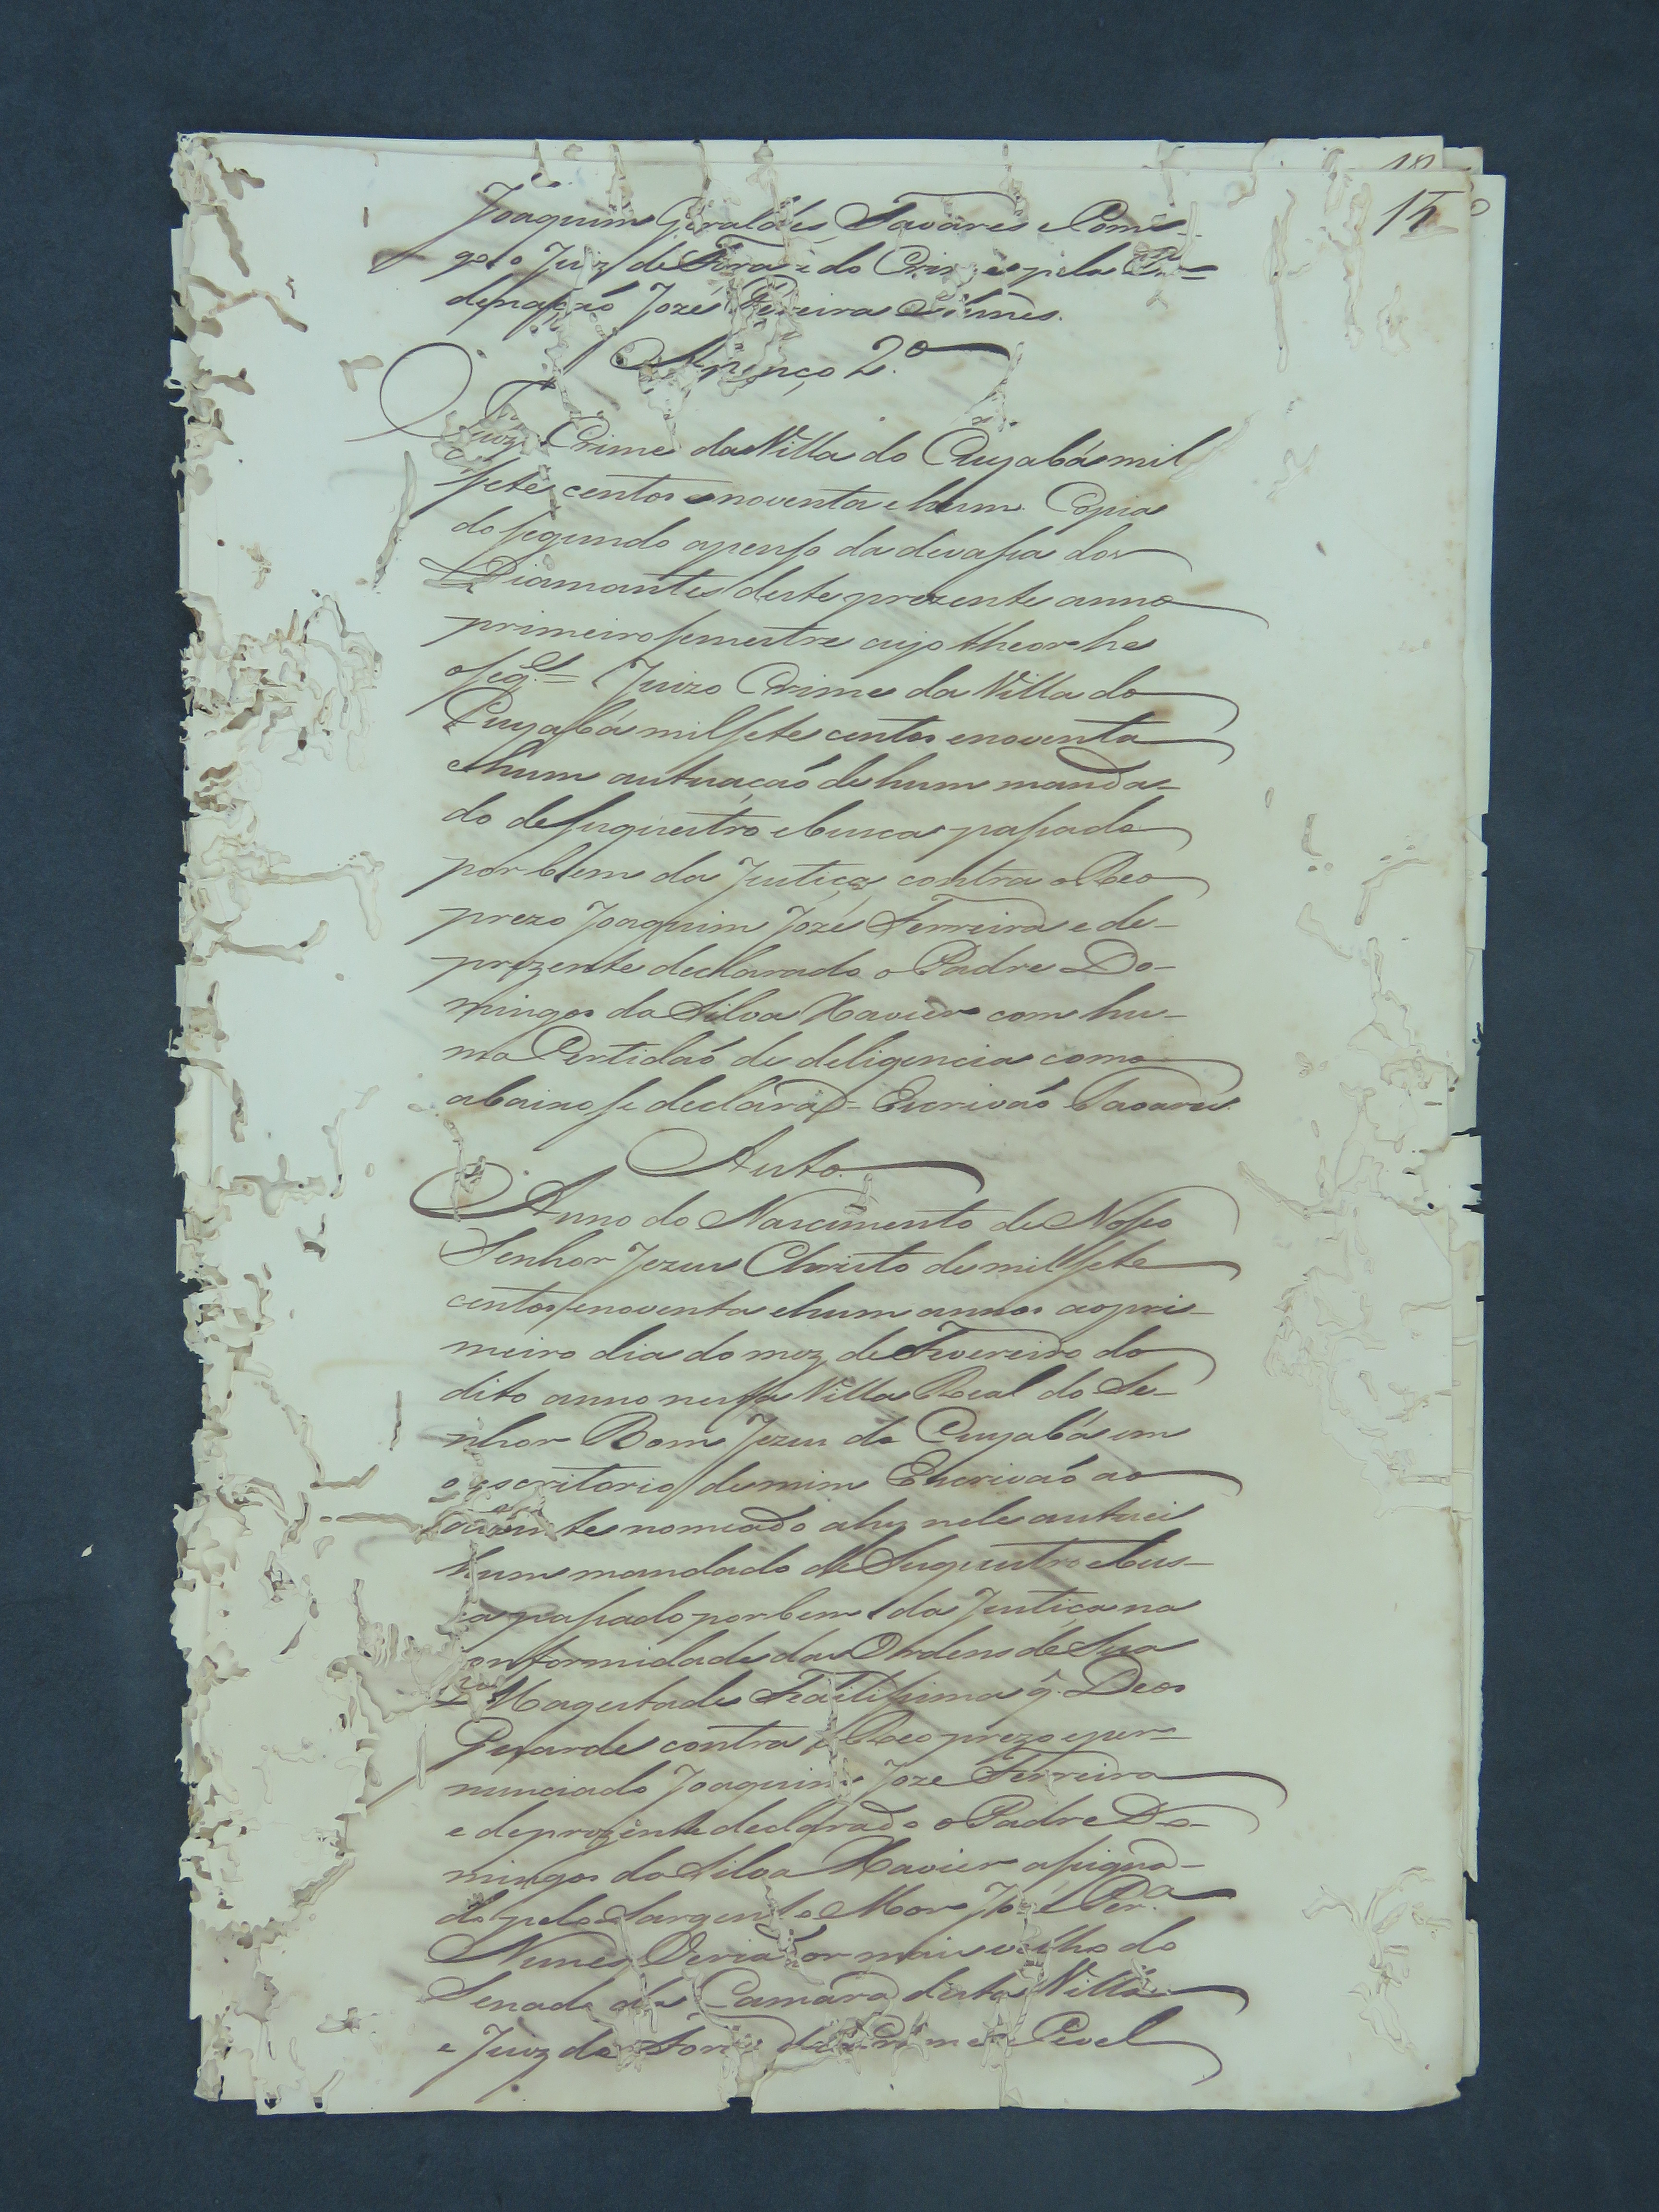 15
Joaquim Giraldes Tavares e Comi-
go o Juiz de Fora e do Crime pela Or=
denaçaõ Jozé Pereira Nunes.
Apenço 2.º
Juizo Crime da Villa do Cuyabá mil
sete centos e noventa e hum. Copia
do segundo apenso da devassa dos
Diamantes deste prezente anno
primeiro semestre cujo theor he
o seg.te = Juizo Crime da Villa do
Cuyabá mil sete centos e noventa
e hum autuaçaõ de hum manda-
do de suquestro e busca passado
por bem da Justiça contra o Reo
prezo Joaquim Jozé Ferreira e de-
prezente declarado o Padre Do-
mingos da Silva Xavier com hu-
ma Certidaõ de deligencia como
abaixo se declara = Escrivaõ Tavares
Auto.
Anno do Nascimento de Nosso
Senhor Jezus Christo de mil sete
centos e noventa e hum annos ao pri-
meiro dia do mez de Fevereiro do
dito anno nesta Villa Real do Se-
nhor Bom Jezus do Cuyabá em
o escritorio de mim Escrivaõ ao
diante nomeado ahy nele autuei
hum mandado de Suquestro e bus-
ca passado por bem da Justiça na
conformidade das Ordens de Sua
Magestade Fidelissima q. Deos
Guarde contra o Reo prezo e per-
nunciado Joaquim Joze Ferreira
e deprezente declarado o Padre Do-
mingos da Silva Xavier assigna-
do pelo Sargento Mor Jozé Per.a
Nunes Veriador mais velho do
Senado da Camara desta Villa
e Juiz de Fora do Crime e Civel